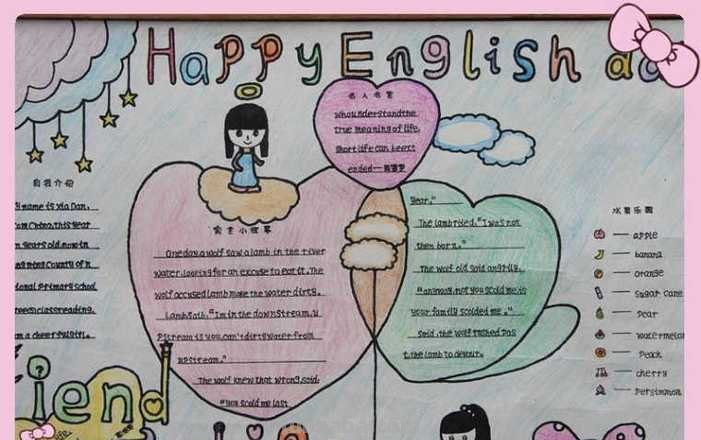 Happy English
名人名言
who understand the
true meaning of life,
Short life can be est
ended
自我介绍
name is Xia Dan,
om China, this year
years old. now in
County of n
ional primary school
reading.
m a cheerful girl.
寓言小故事
One day a wolf saw a lamb in the river
water. looking for an excuse to eat it. The
wolf accused lamb make the water dirty.
Lamb said: "I'm in the downstream, u
Pstream is you. can't dirty water from
upstream."
The wolf knew that wrong, said:
"you scold me last
year."
The lamb cried, "I was not
then born."
The wolf old said angrily,
"anyway, not you scold me, is
your family scolded me."
Said, the wolf rushed pas
t, the lamb to devour.
水果乐园
apple
banana
orange
sugar cane
Pear
watermelon
Peach
cherry
Persimmon
iend